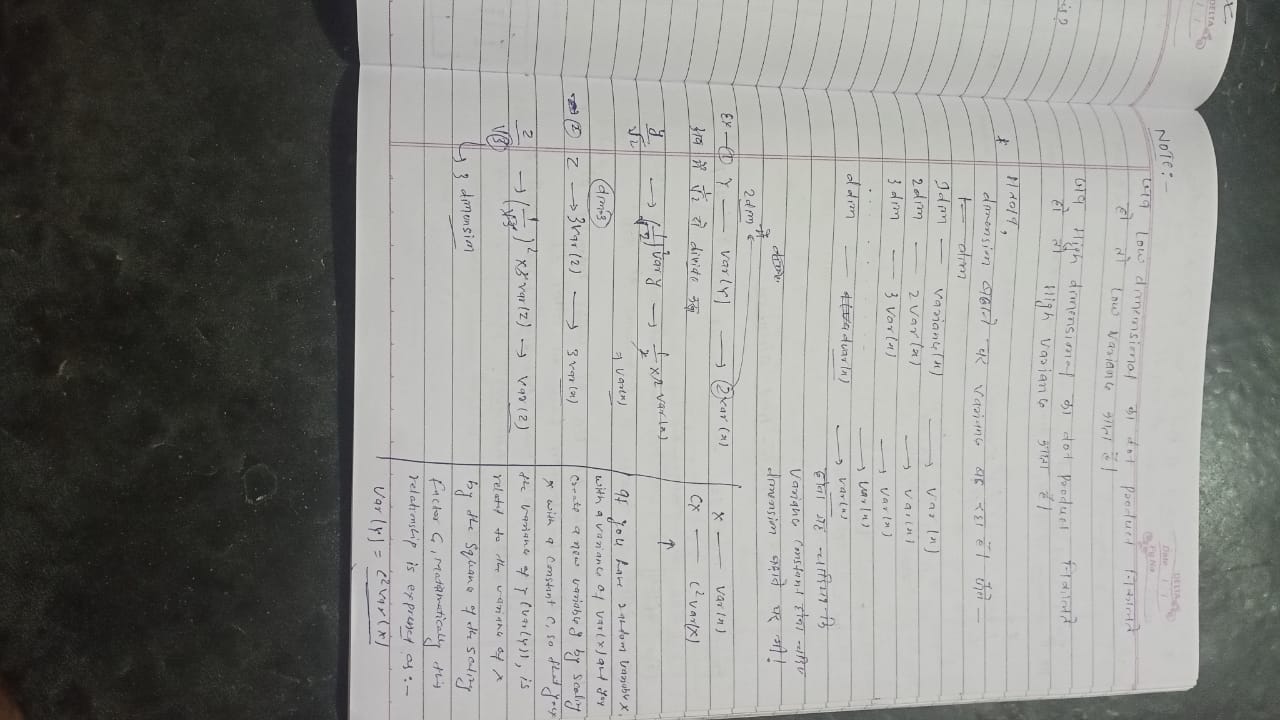 DELTA
DELTA
Date
Pg No
NOTE:-
जब Low dimensional का dot product निकालते
हो तो Low Variance आता है।
जब High dimensional का dot product निकालते
हो तो High Variance आता है।
* मतलब,
dimension बढाने पर Variance बढ़ रहा है। जैसे —
dim
1dim — Variance(x) → Var(x)
2dim — 2 Var(x) → Var(x)
3 dim — 3 Var(x) → Var(x)
. . . . . . → Var(x)
d dim — dvar(x) → var(x)
होना यह चाहिए कि
Variance Constant होना चाहिए
dimension बढाने पर भी!
2dim में
Ex - ① Y — Var(Y) → ②var(x)
अब में 1/√2 से divide
y/√2 → (1/√2)² Var y → 1/2 x 2 Var(x)
= Var(x)
dim=3
② Z → 3Var(Z) → 3var(x)
Z/√3 → (1/√3)² x3 var(Z) → Var(Z)
↳ 3 dimension
X — Var(x)
CX — C² Var(X)
↑
If you have random variable X,
with a variance of var(x) and you
create a new variable y by scaling
x with a constant C, so that y=cx
the variance of Y (Var(Y)), is
related to the variance of X
by the Square of the scaling
factor C, Matematically this
relationship is expressed as:-
Var(Y) = C²Var(X)